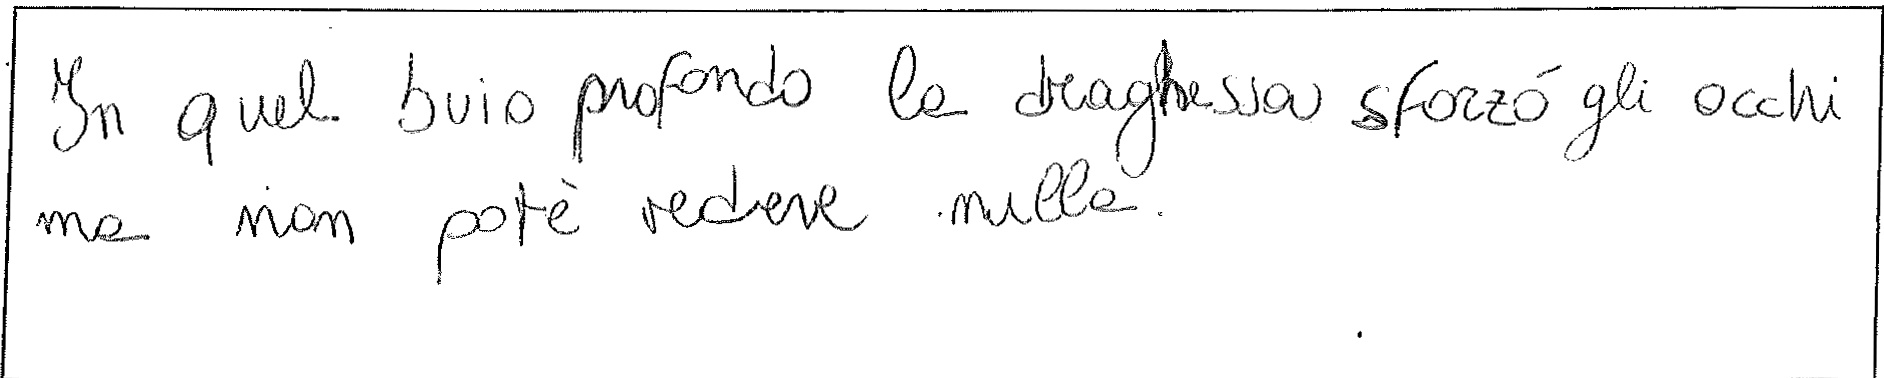 In quel buio profondo la draghessa sforzó gli occhi
ma non potè vedere nulla.